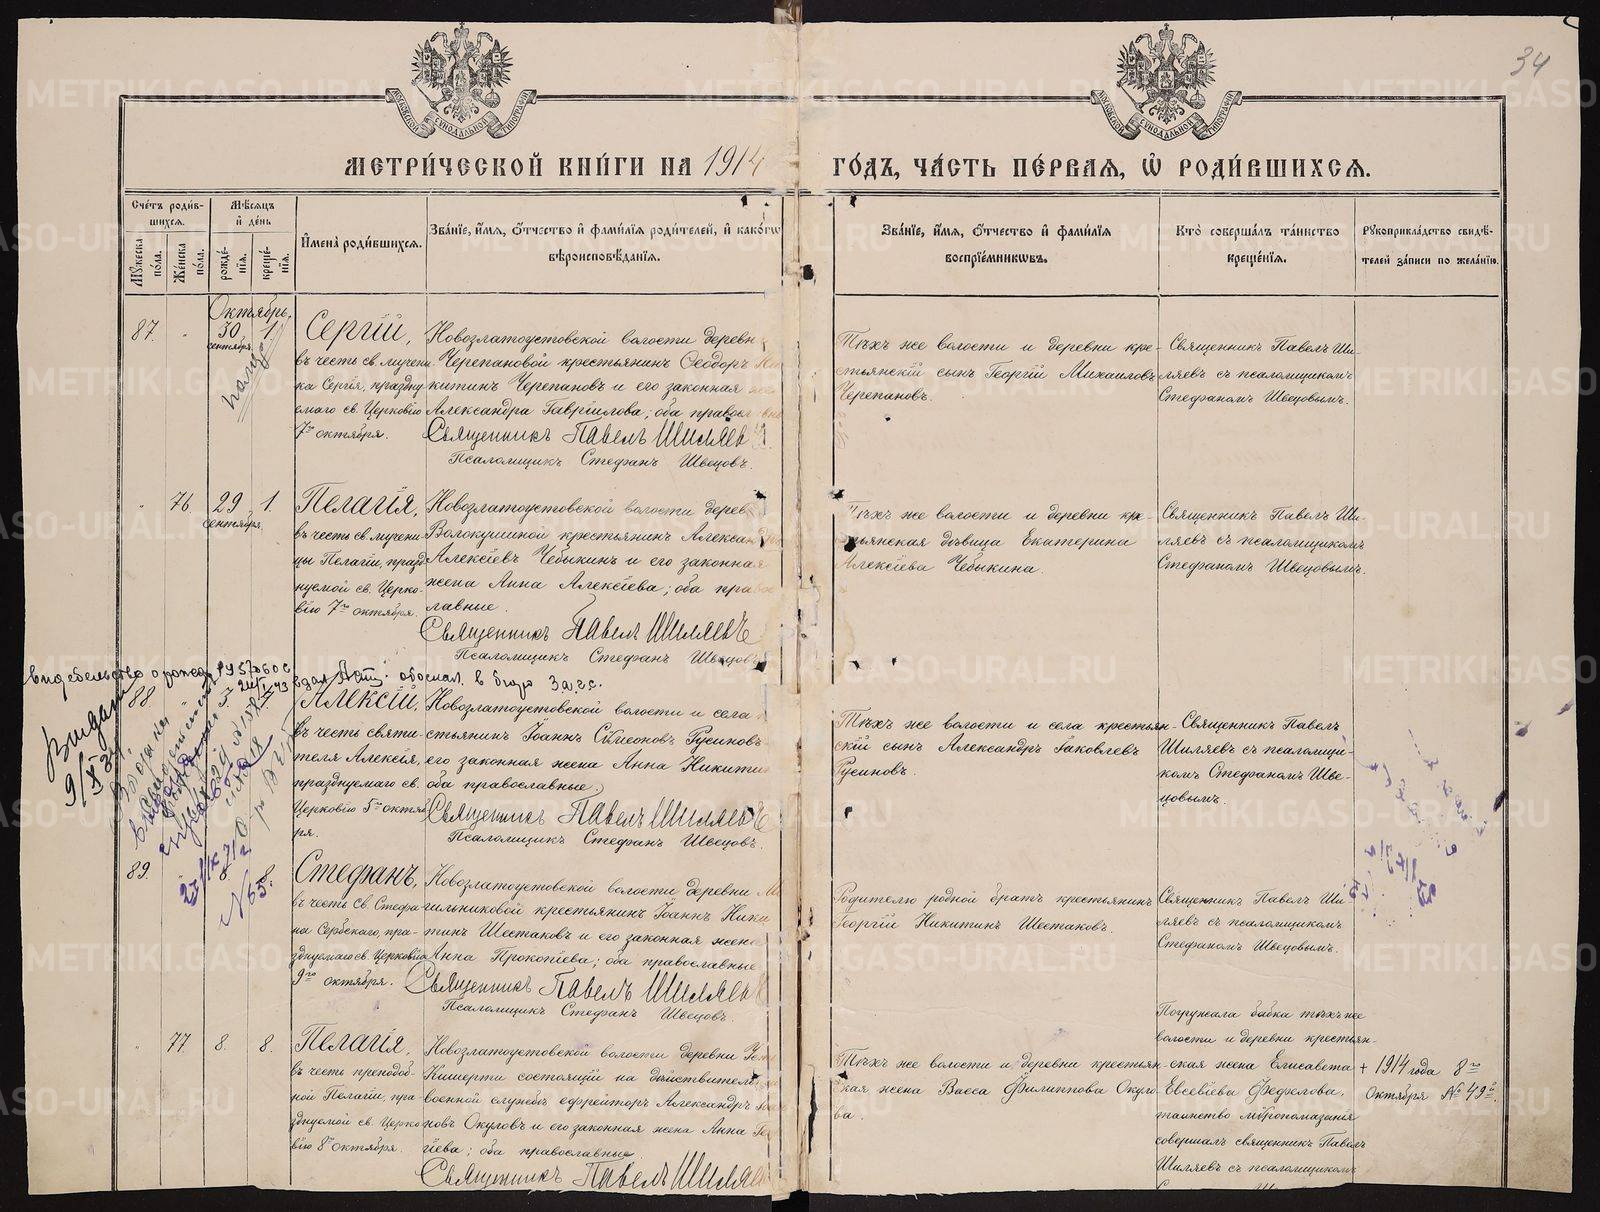 34
МОСКОВСКОЙ СѴНОДАЛЬНОЙ ТИПОГРАФІИ
МОСКОВСКОЙ СѴНОДАЛЬНОЙ ТИПОГРАФІИ
МЕТРИ́ЧЕСКОЙ КНИ́ГИ НА 1914 ГО́ДЪ, ЧА́СТЬ ПЕ́РВАЯ, Ѽ РОДИ́ВШИХСЯ.
Сче́тъ роди́в-
шихся.
Мꙋ́жеска по́ла.
Же́нска по́ла.
Мѣ́сяцъ
и҆ де́нь
рожде́-
нїя.
креще́-
нїя.
И҆мена̀ роди́вшихся.
Зва́нїе, и҆́мя, ѻ҆́тчество и҆ фами́лїя роди́телей, и҆ како́гѡ
вѣроисповѣ́данїя.
Зва́нїе, и҆́мя, ѻ҆́тчество и҆ фами́лїя
воспрїе́мникѡвъ.
Кто̀ соверша́лъ та́инство
креще́нїя.
Рꙋкоприкла́дство свидѣ́-
телей за́писи по жела́нїю.
Октябрь.
87.
30
сентября.
1.
Сергій,
въ честь св. мучени-
ка Сергія, праздну-
емаго св. Церковію
7го октября.
Новозлатоустовской волости деревн
Черепановой крестьянинъ Ѳеодоръ
китинъ Черепановъ и его законная
Александра Гавріилова; оба правосл
Священникъ Павелъ Шиляевъ
Псаломщикъ Стефанъ Швецовъ.
Тѣхъ же волости и деревни кре-
стьянскій сынъ Георгій Михаиловъ
Черепановъ.
Священникъ Павелъ Ши-
ляевъ съ псаломщикомъ
Стефаномъ Швецовымъ.
76.
29
сентября.
1.
Пелагія,
въ честь св. мучени-
цы Пелагіи, празд-
нуемой св. Церко-
вію 7го октября.
Новозлатоустовской волости дерев
Волокушиной крестьянинъ Алексан
Алексіевъ Чебыкинъ и его законная
жена Анна Алексіева; оба пра
лавные.
Священникъ Павелъ Шиляевъ
Псаломщикъ Стефанъ Швецовъ
Тѣхъ же волости и деревни кре-
стьянская дѣвица Екатерина
Алексіева Чебыкина.
Священникъ Павелъ Ши-
ляевъ съ псаломщикомъ
Стефаномъ Швецовымъ.
в бюро Загс.
Выдан
88.
Алексій,
въ честь святи-
теля Алексія,
празднуемаго св.
Церковію 5го октяб-
ря.
Новозлатоустовской волости и села
стьянинъ Іоаннъ Симеоновъ Русиновъ
его законная жена Анна Никити
оба православные.
Священникъ Павелъ Шиляевъ
Псаломщикъ Стефанъ Швецовъ.
Тѣхъ же волости и села крестьян-
скій сынъ Александръ Іаковлевъ
Русиновъ.
Священникъ Павелъ
Шиляевъ съ псаломщи-
комъ Стефаномъ Шве-
цовымъ.
89.
8.
8.
Стефанъ,
въ честь Св. Стефа-
на Сербскаго, пра-
зднуемаго св. Церковію
9го октября.
Новозлатоустовской волости деревни
гильниковой крестьянинъ Іоаннъ Ники
тинъ Шестаковъ и его законная жена
Анна Прокопіева; оба православные
Священникъ Павелъ Шиляевъ
Псаломщикъ Стефанъ Швецовъ.
Родителю родной братъ крестьянинъ
Георгій Никитинъ Шестаковъ.
Священникъ Павелъ Ши-
ляевъ съ псаломщикомъ
Стефаномъ Швецовымъ.
77.
8.
8.
Пелагія,
въ честь преподоб-
ной Пелагіи, пра-
зднуемой св. Церко-
вію 8го октября.
Новозлатоустовской волости деревни
Кишерти состоящій на дѣйствитель
военной службѣ ефрейторъ Александръ
новъ Окуловъ и его законная жена Анна
гіева; оба православные
Священникъ Павелъ Шиляевъ
Тѣхъ же волости и деревни крестьян-
ская жена Васса Филиппова Окуло-
ва.
Погружала бабка тѣхъ же
волости и деревни крестьян-
ская жена Елисавета
Евсевіева Федо­лова,
таинство мѵропомазанія
совершалъ священникъ Павелъ
Шиляевъ съ псаломщикомъ
+ 1914 года 8го
Октября № 49й.
METRIKI.GASO-URAL.RU